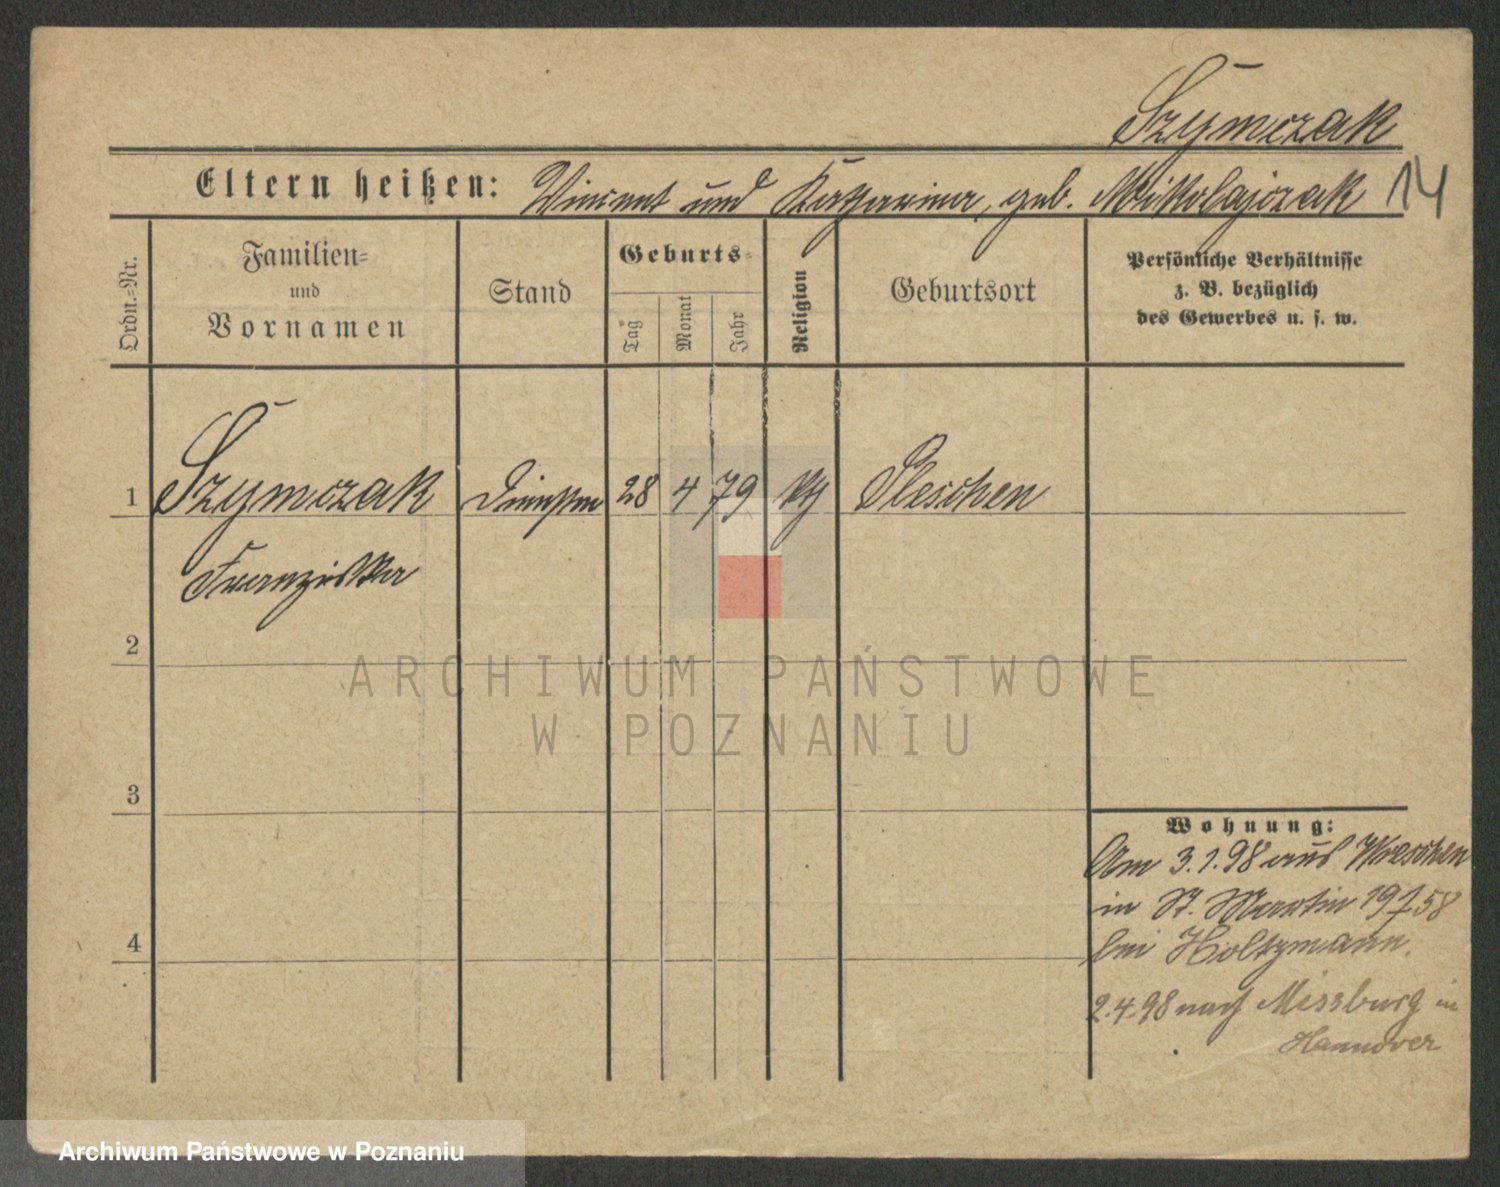 Szymczak
Eltern heißen: Vincent und Katharina, geb. Mikolajczak 14
Ordn.-Nr.
Familien-
und
Vornamen
Stand
Geburts-
Tag
Monat
Jahr
Religion
Geburtsort
Persönliche Verhältnisse
z. B. bezüglich
des Gewerbes u. s. w.
1 Szymczak 28 4 79 kth Pleschen
Franziska
2
3
4
Wohnung:
Am 3.1.98 aus Wreschen
in St. Martin 58
bei Holtzmann.
2.4.98 nach Missburg in
Hannover
ARCHIWUM PAŃSTWOWE
W POZNANIU
Archiwum Państwowe w Poznaniu